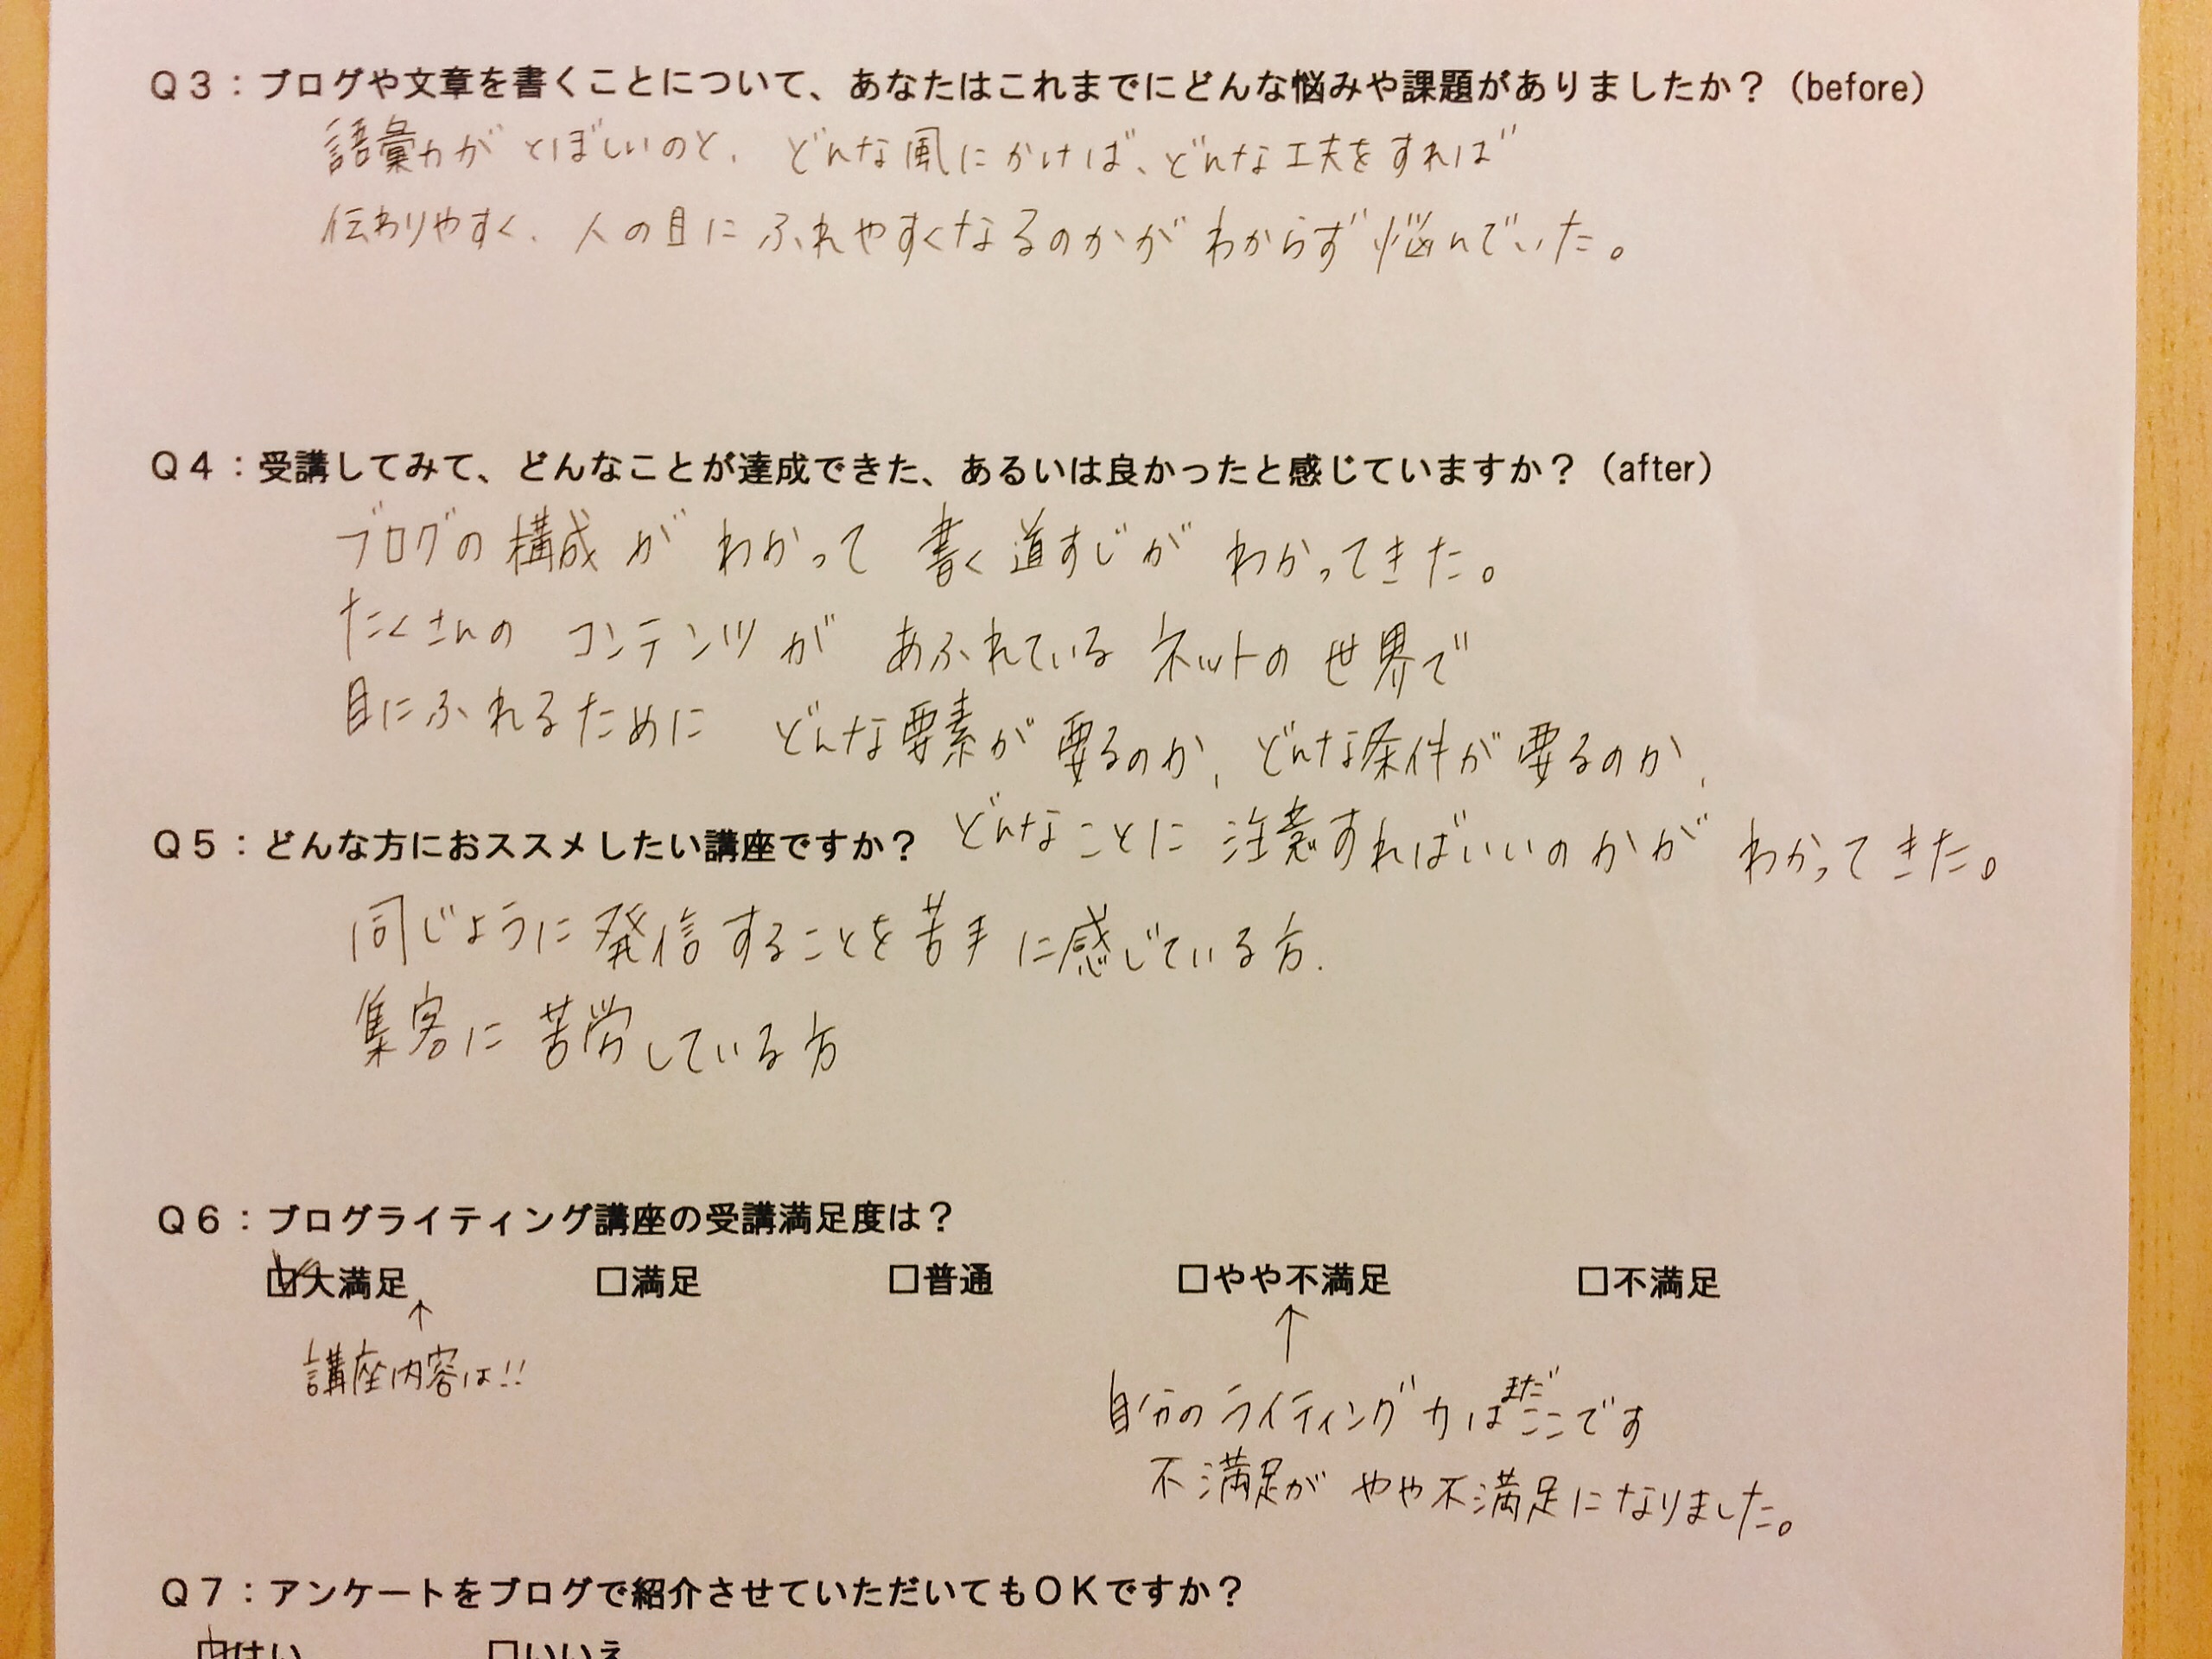 Q3：ブログや文章を書くことについて、あなたはこれまでにどんな悩みや課題がありましたか？（before）
語彙力がとぼしいのと、どんな風にかけば、どんな工夫をすれば
伝わりやすく、人の目にふれやすくなるのかがわからず悩んでいた。
Q4：受講してみて、どんなことが達成できた、あるいは良かったと感じていますか？（after）
ブログの構成がわかって書く道すじがわかってきた。
たくさんのコンテンツがあふれているネットの世界で
目にふれるためにどんな要素が要るのか、どんな条件が要るのか、
どんなことに注意すればいいのかがわかってきた。
Q5：どんな方におススメしたい講座ですか？
同じように発信することを苦手に感じている方.
集客に苦労している方
Q6：ブログライティング講座の受講満足度は？
☑大満足 □満足 □普通 □やや不満足 □不満足
↑ ↑
講座内容は!!
自分のライティング力はまだここです
不満足がやや不満足になりました。
Q7：アンケートをブログで紹介させていただいてもOKですか？
☑はい □いいえ